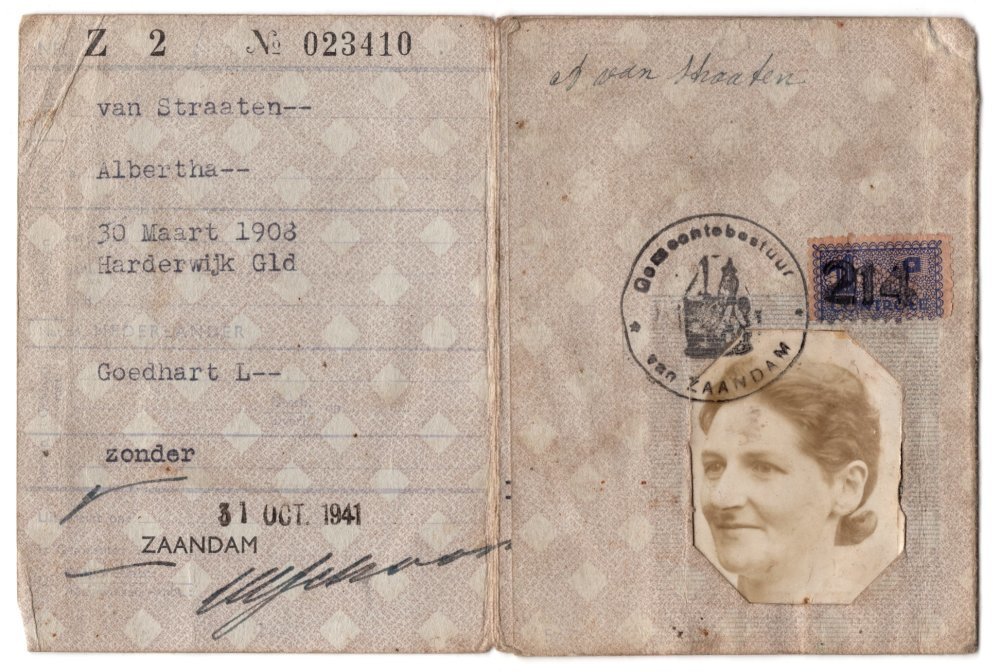 Z 2 № 023410
van Straaten--
Albertha--
30 Maart 1908
Harderwijk Gld
NEDERLANDER
Goedhart L--
zonder
31 OCT. 1941
ZAANDAM
A van Straaten
Gemeentebestuur
van ZAANDAM
214